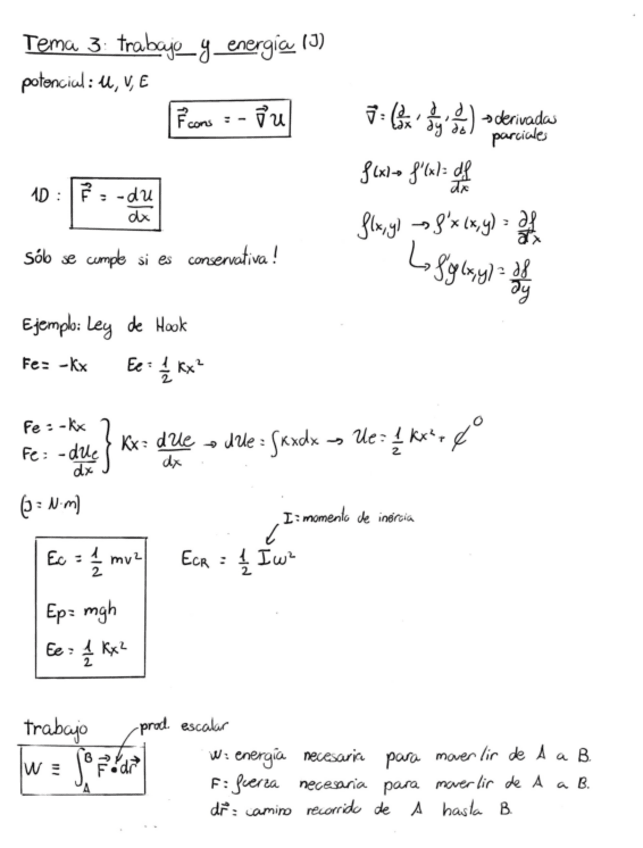 Tema 3: trabajo y energía (J)
potencial: U, V, E
F⃗cons = - ∇⃗U
∇⃗ = (∂/∂x, ∂/∂y, ∂/∂z) → derivadas parciales
f(x) → f'(x) = df/dx
1D: F⃗ = -dU/dx
f(x,y) → f'x (x,y) = ∂f/∂x
↳ f'y(x,y) = ∂f/∂y
Sólo se cumple si es conservativa!
Ejemplo: Ley de Hook
Fe = -Kx Ee = 1/2 Kx²
Fe = -Kx
Fe = -dUe/dx } Kx = dUe/dx → dUe = ∫Kxdx → Ue = 1/2 Kx² + C⁰
(J = N·m)
I = momento de inércia
Ec = 1/2 mv² ECR = 1/2 Iω²
Ep = mgh
Ee = 1/2 Kx²
trabajo
prod. escalar
W ≡ ∫_A^B F⃗ • dr⃗
W: energía necesaria para mover/ir de A a B.
F: fuerza necesaria para mover/ir de A a B.
dr⃗ = camino recorrido de A hasta B.